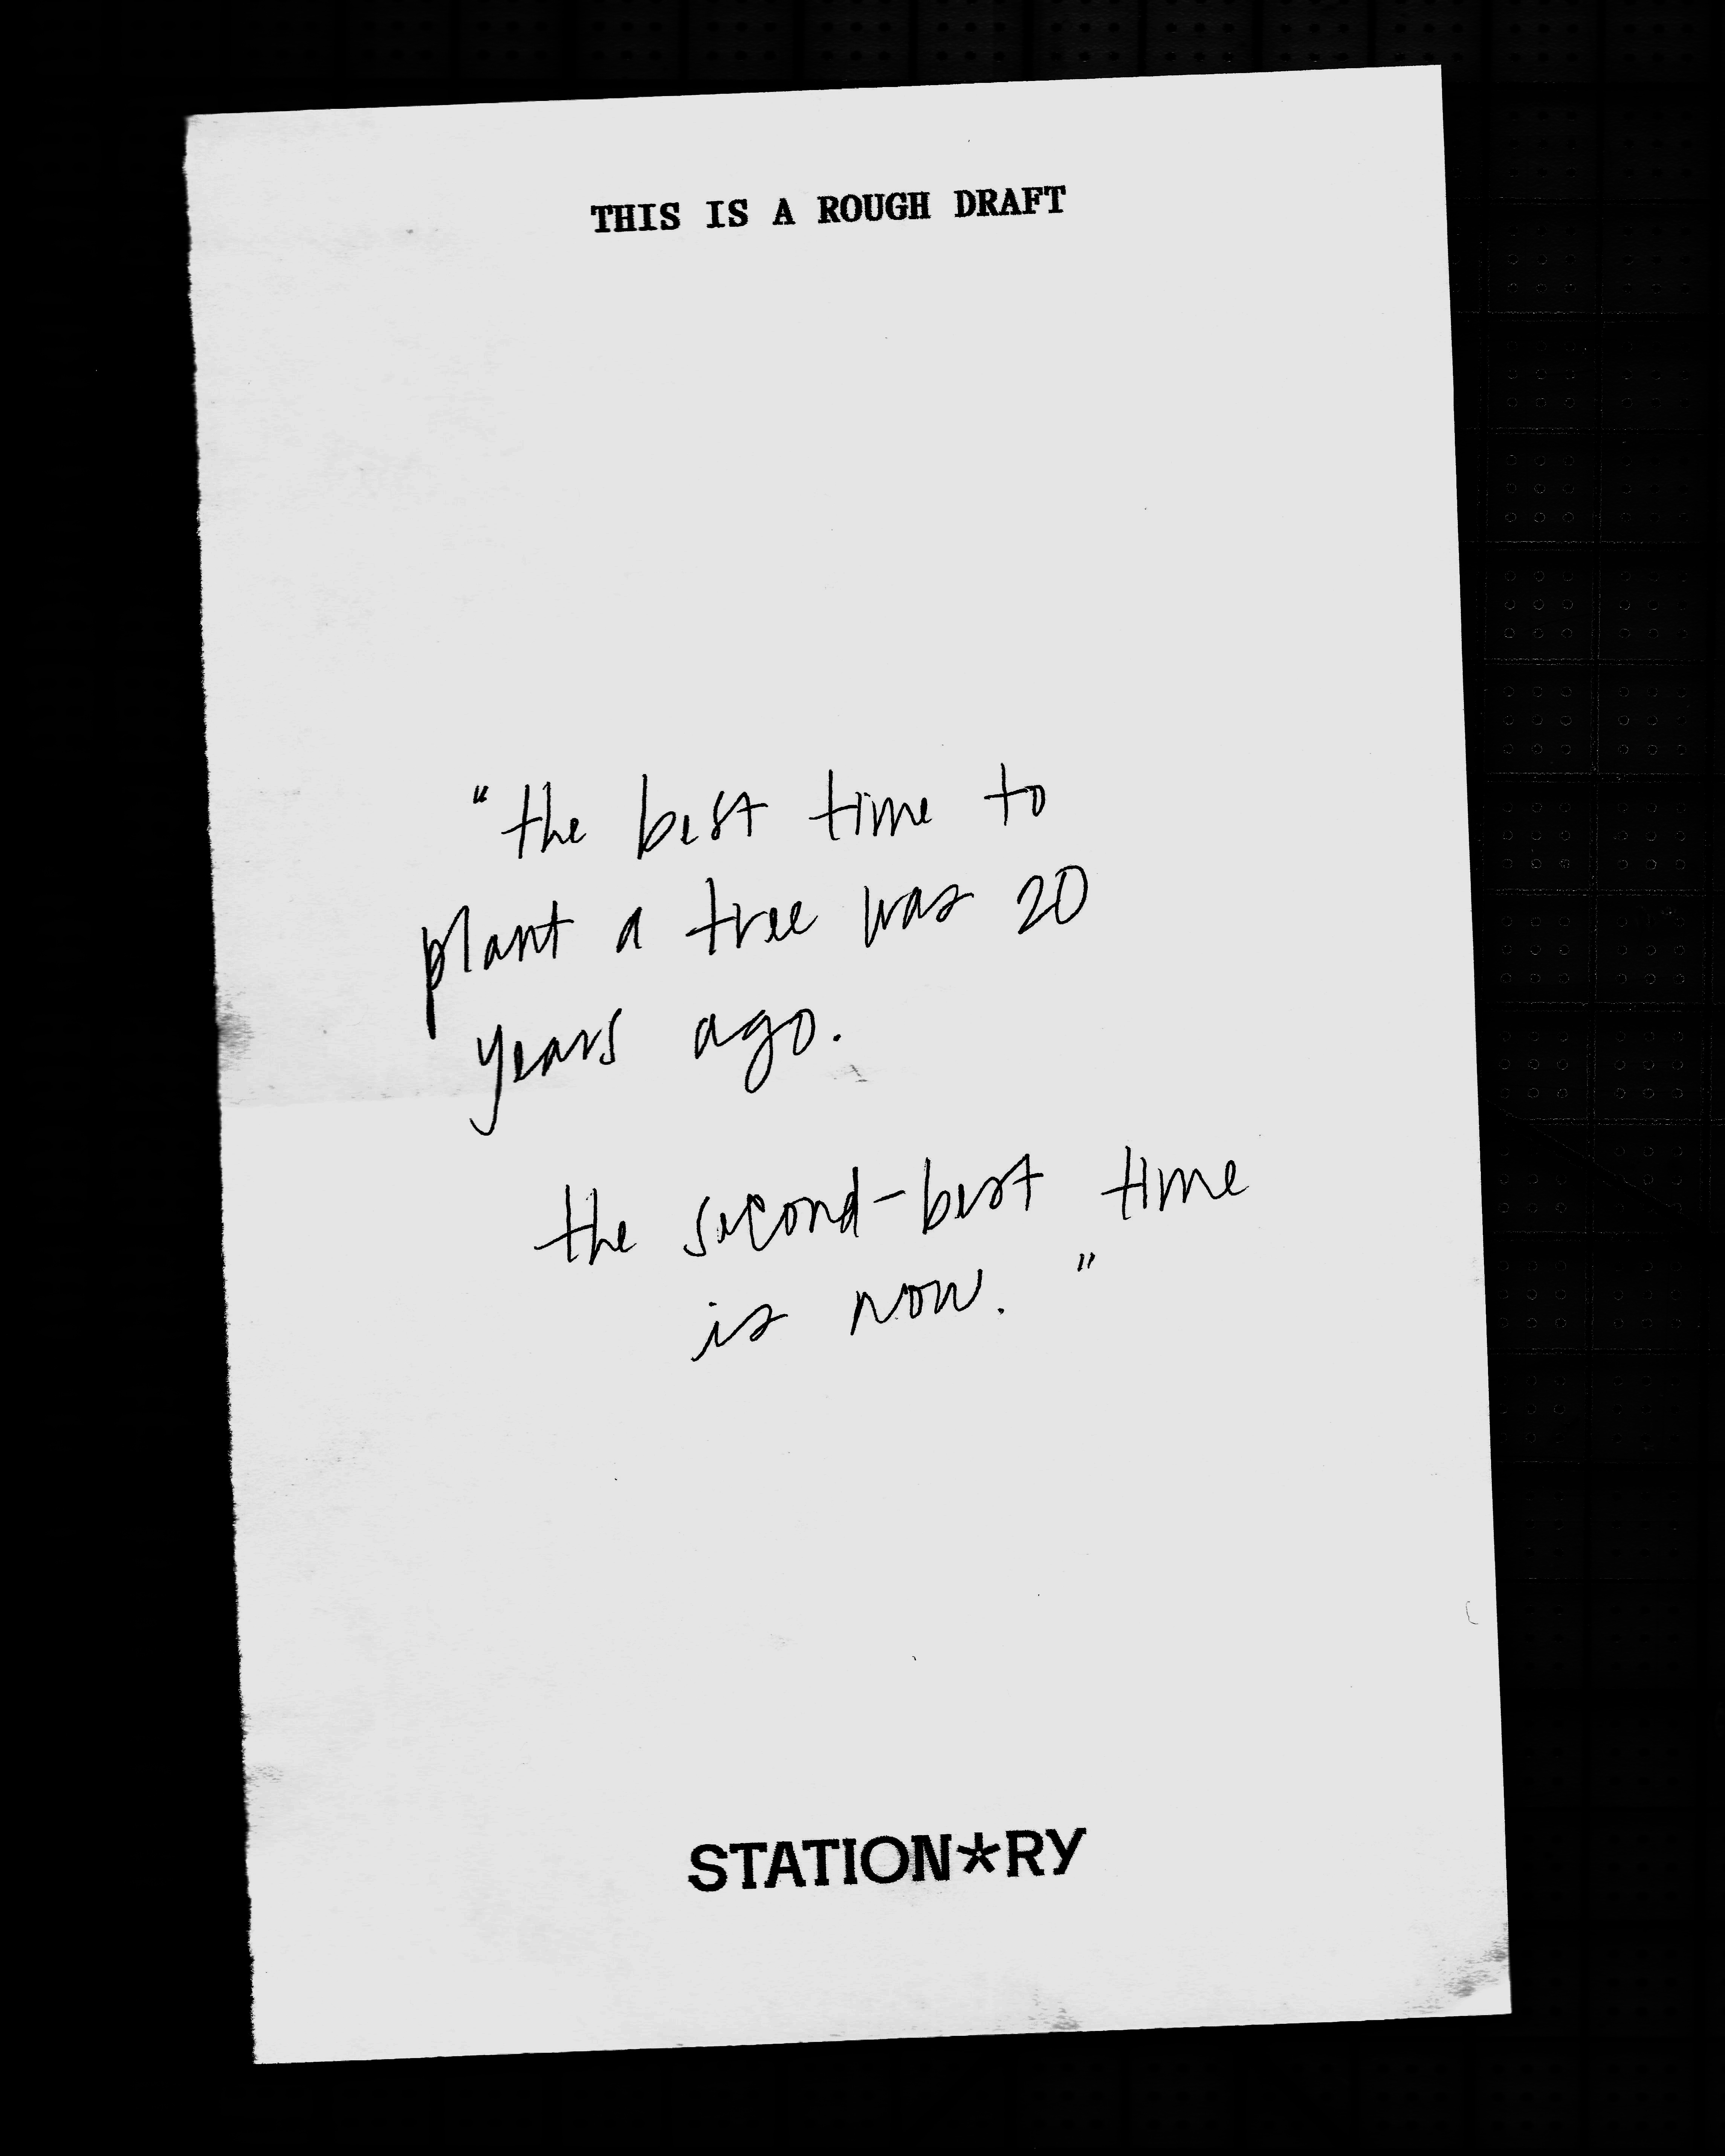 THIS IS A ROUGH DRAFT
"the best time to
plant a tree was 20
years ago.
the second-best time
is now."
STATION*RY